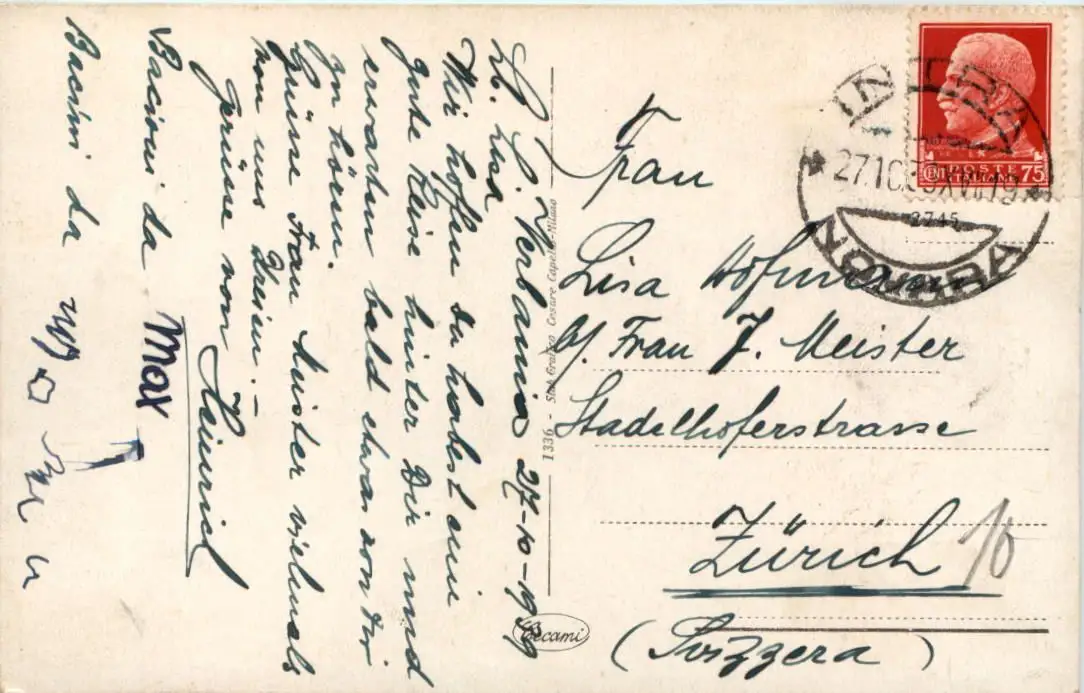 V. Verbania 27-10-1939
Lb. Lisa
Wir hoffen Du habest eine
gute Reise hinter Dir und
erwarten bald etwas von Dir
zu hören.
Grüsse Frau Meister vielmals
von uns Dreien. –
Grüsse von Heinrich
Bacioni da Max
Bacini da
1336 - Stab. Grafico Cesare Capello - Milano
Cecami
INTRA
27.10.39 XVII.19
2745
NOVARA
POSTE
ITALIANE
CENT 75
Frau
Lisa Hofmann
b/ Frau J. Meister
Stadelhoferstrasse
Zürich 10
(Svizzera)